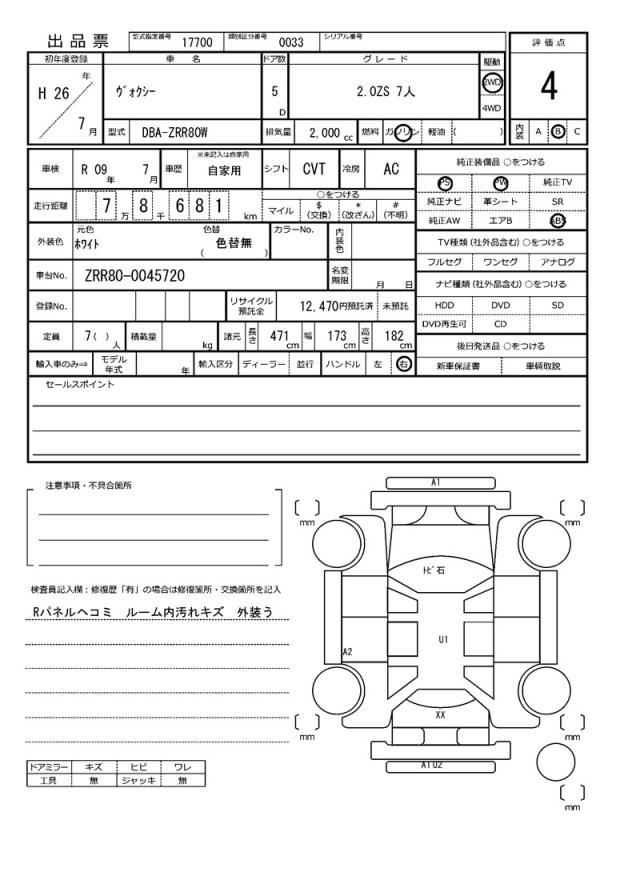 出品票
型式指定番号 17700 類別区分番号 0033 シリアル番号
評価点
4
内装 A B C
初年度登録 車名 ドア数 グレード 駆動
H 26 年 7 月
ヴォクシー
5 D
2.0ZS 7人
2WD
4WD
型式 DBA-ZRR80W 排気量 2,000 cc 燃料 ガソリン 軽油 ( )
車検 R 09 年 7 月 車歴 ※未記入は自家用 自家用 シフト CVT 冷房 AC
走行距離 7 万 8 千 6 8 1 km
○をつける
マイル $(交換) *(改ざん) #(不明)
外装色 元色 ホワイト 色替 ( 色替無 ) カラーNo. 内装色
車台No. ZRR80-0045720 名変期限 月 日
登録No. リサイクル預託金 12,470円預託済 未預託
定員 7( ) 人 積載量 kg 諸元 長さ 471 cm 幅 173 cm 高さ 182 cm
輸入車のみ⇒ モデル年式 年 輸入区分 ディーラー 並行 ハンドル 左 右
純正装備品 ○をつける
PS PW 純正TV
純正ナビ 革シート SR
純正AW エアB ABS
TV種類(社外品含む)○をつける
フルセグ ワンセグ アナログ
ナビ種類(社外品含む)○をつける
HDD DVD SD
DVD再生可 CD
後日発送品 ○をつける
新車保証書 車輌取説
セールスポイント
注意事項・不具合箇所
検査員記入欄:修復歴「有」の場合は修復箇所・交換箇所を記入
Rパネルヘコミ ルーム内汚れキズ 外装う
ドアミラー キズ ヒビ ワレ
工具 無 ジャッキ 無
A1
mm
mm
トビ石
U1
A2
XX
mm
mm
A1U2
mm